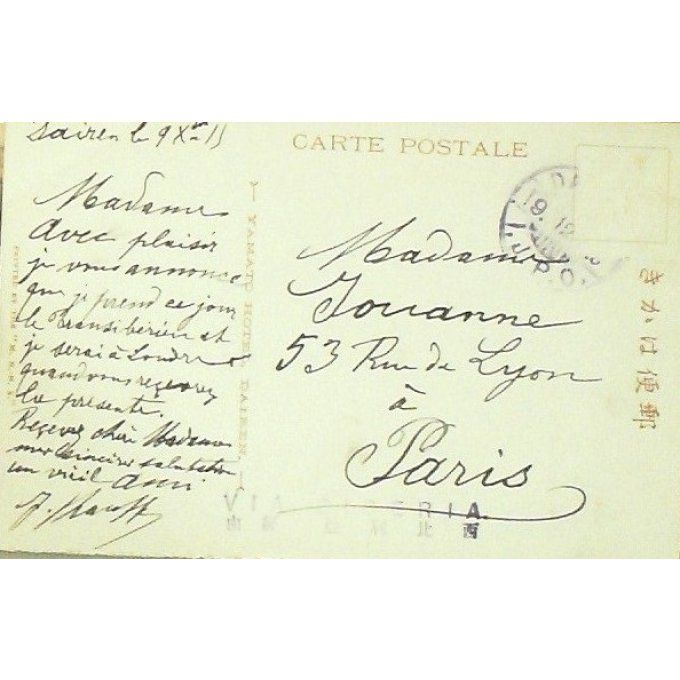 Dairen le 9 Xbre 11
Madame
Avec plaisir
je vous annonce
que je prend ce jour
le transibérien et
je serai à Londres
quand vous recevrez
la présente.
Recevez chère Madame
mes sincère salutation
un vieil ami
YAMATO HOTEL, DAIREN.
CARTE POSTALE
Madame
Jouanne
53 Rue de Lyon
à
Paris
きかは便郵
19. 12
I.J.P.O.
VIA SIBERIA.
由 経 比 西